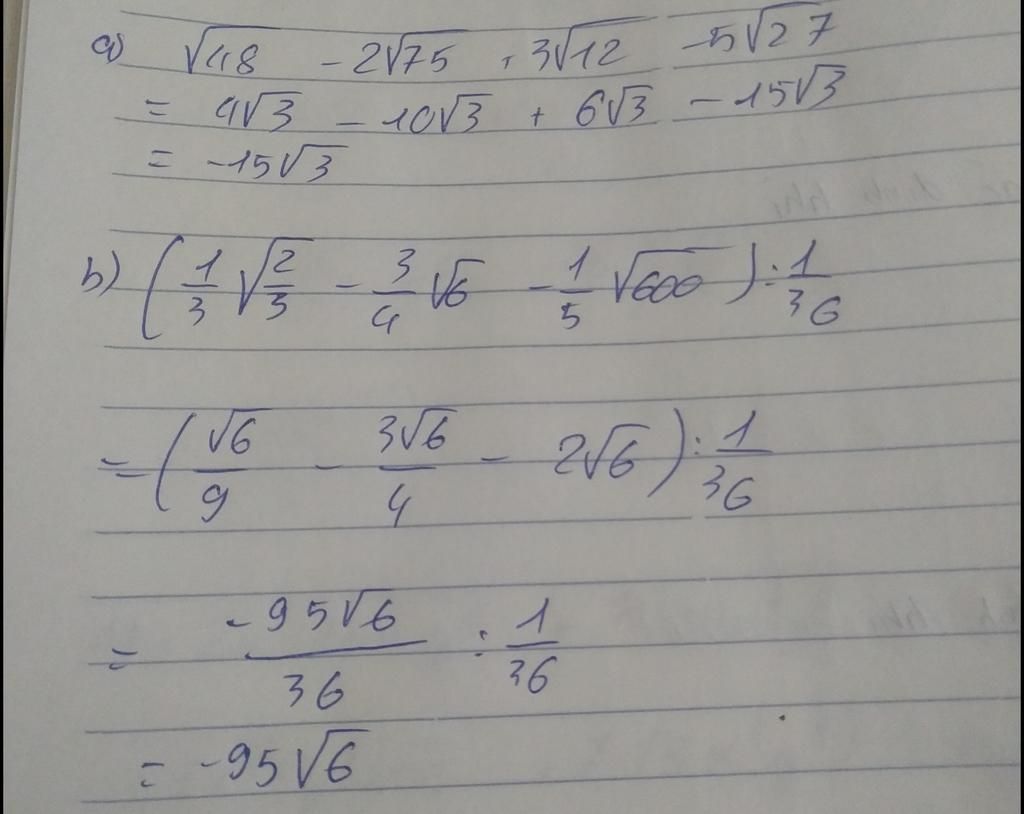 a) √48 - 2√75 + 3√12 - 5√27
= 4√3 - 10√3 + 6√3 - 15√3
= -15√3
b) (1/3 √(2/3) - 3/4 √6 - 1/5 √600) : 1/36
= (√6/9 - 3√6/4 - 2√6) : 1/36
= -95√6/36 : 1/36
= -95√6